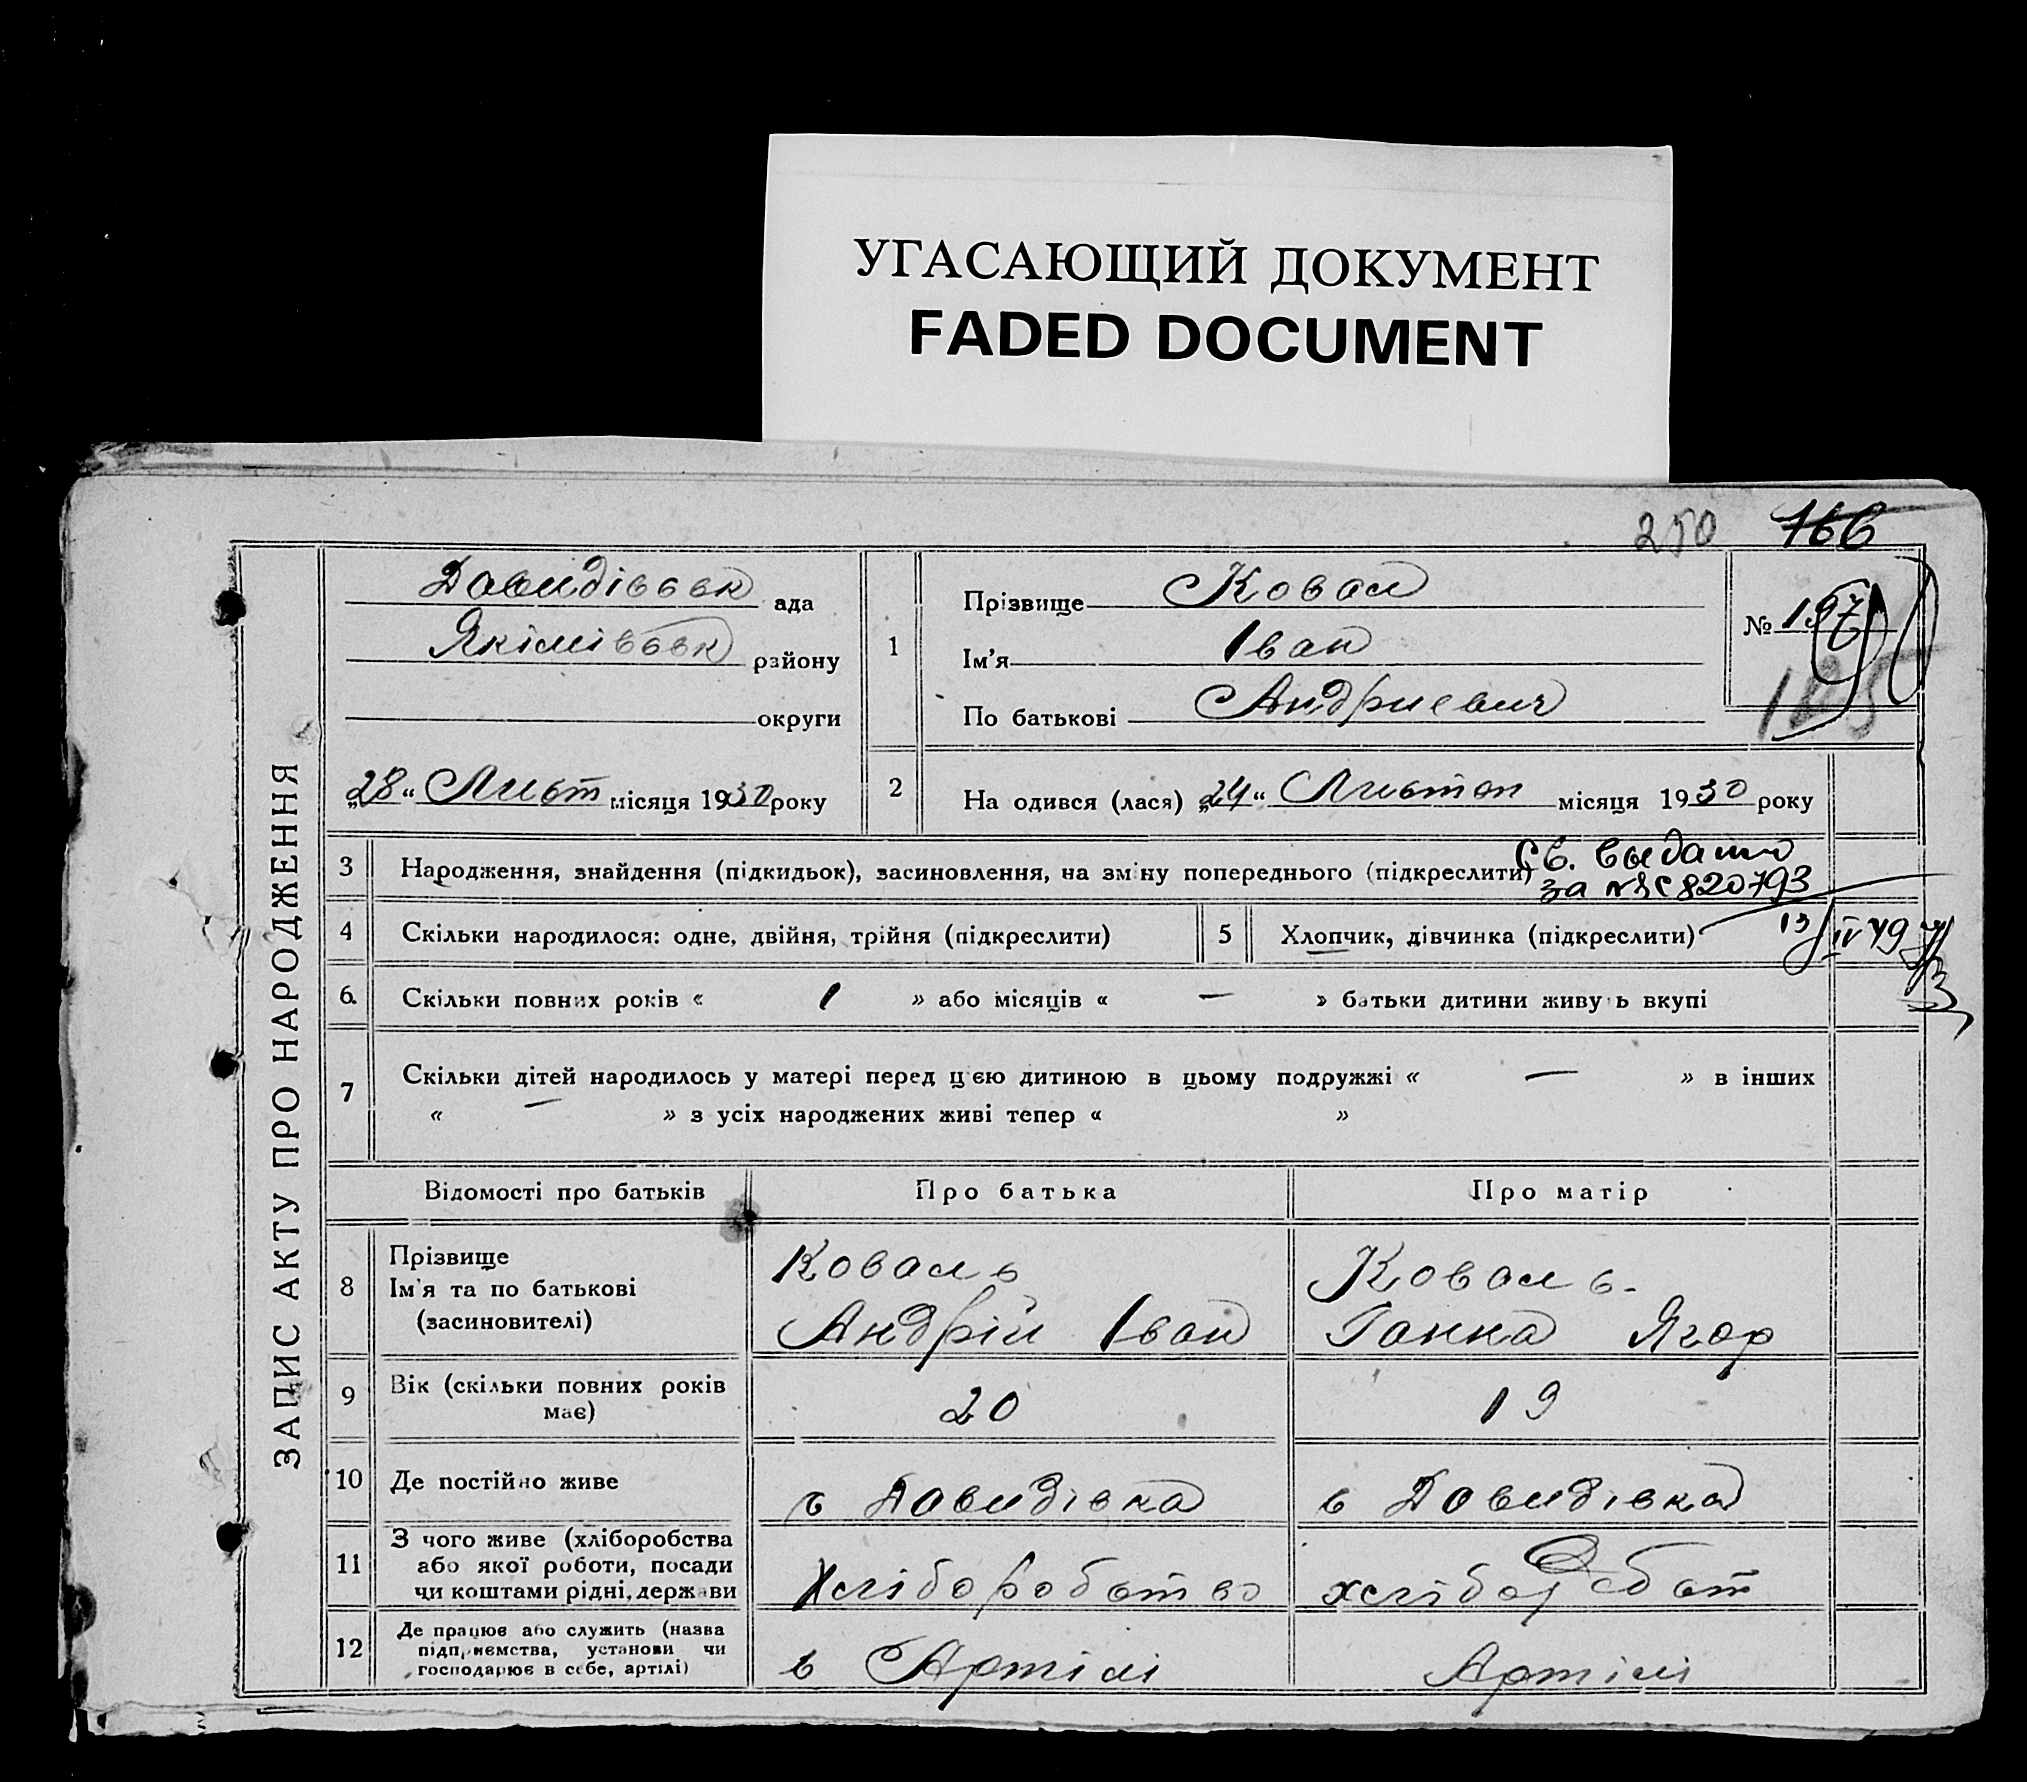 УГАСАЮЩИЙ ДОКУМЕНТ
FADED DOCUMENT
250 166
ЗАПИС АКТУ ПРО НАРОДЖЕННЯ
Давидіввск ада
Якіміввск району
округи
„28“ Лист місяця 1930 року
1
Прізвище Ковал
Ім'я Іван
По батькові Андриевич
№ 197
2 На одився (лася) „24“ Листоп місяця 1930 року
3 Народження, знайдення (підкидьок), засиновлення, на зміну попереднього (підкреслити)
Св. выдано
за № 820793
4 Скільки народилося: одне, двійня, трійня (підкреслити)
5 Хлопчик, дівчинка (підкреслити)
13/IV 49
6. Скільки повних років « 1 » або місяців « — » батьки дитини живуть вкупі
7 Скільки дітей народилось у матері перед цією дитиною в цьому подружжі « — » в інших
« — » з усіх народжених живі тепер « »
Відомості про батьків Про батька Про матір
8 Прізвище
Ім'я та по батькові
(засиновителі)
Коваль
Андрій Іван
Коваль.
Ганна Ягор
9 Вік (скільки повних років
має)
20 19
10 Де постійно живе с Давидівка с Давидівка
11 З чого живе (хліборобства
або якої роботи, посади
чи коштами рідні, держави
Хліборобство хліборобот
12 Де працює або служить (назва
підприємства, установи чи
господарює в себе, артілі)
в Артілі Артілі